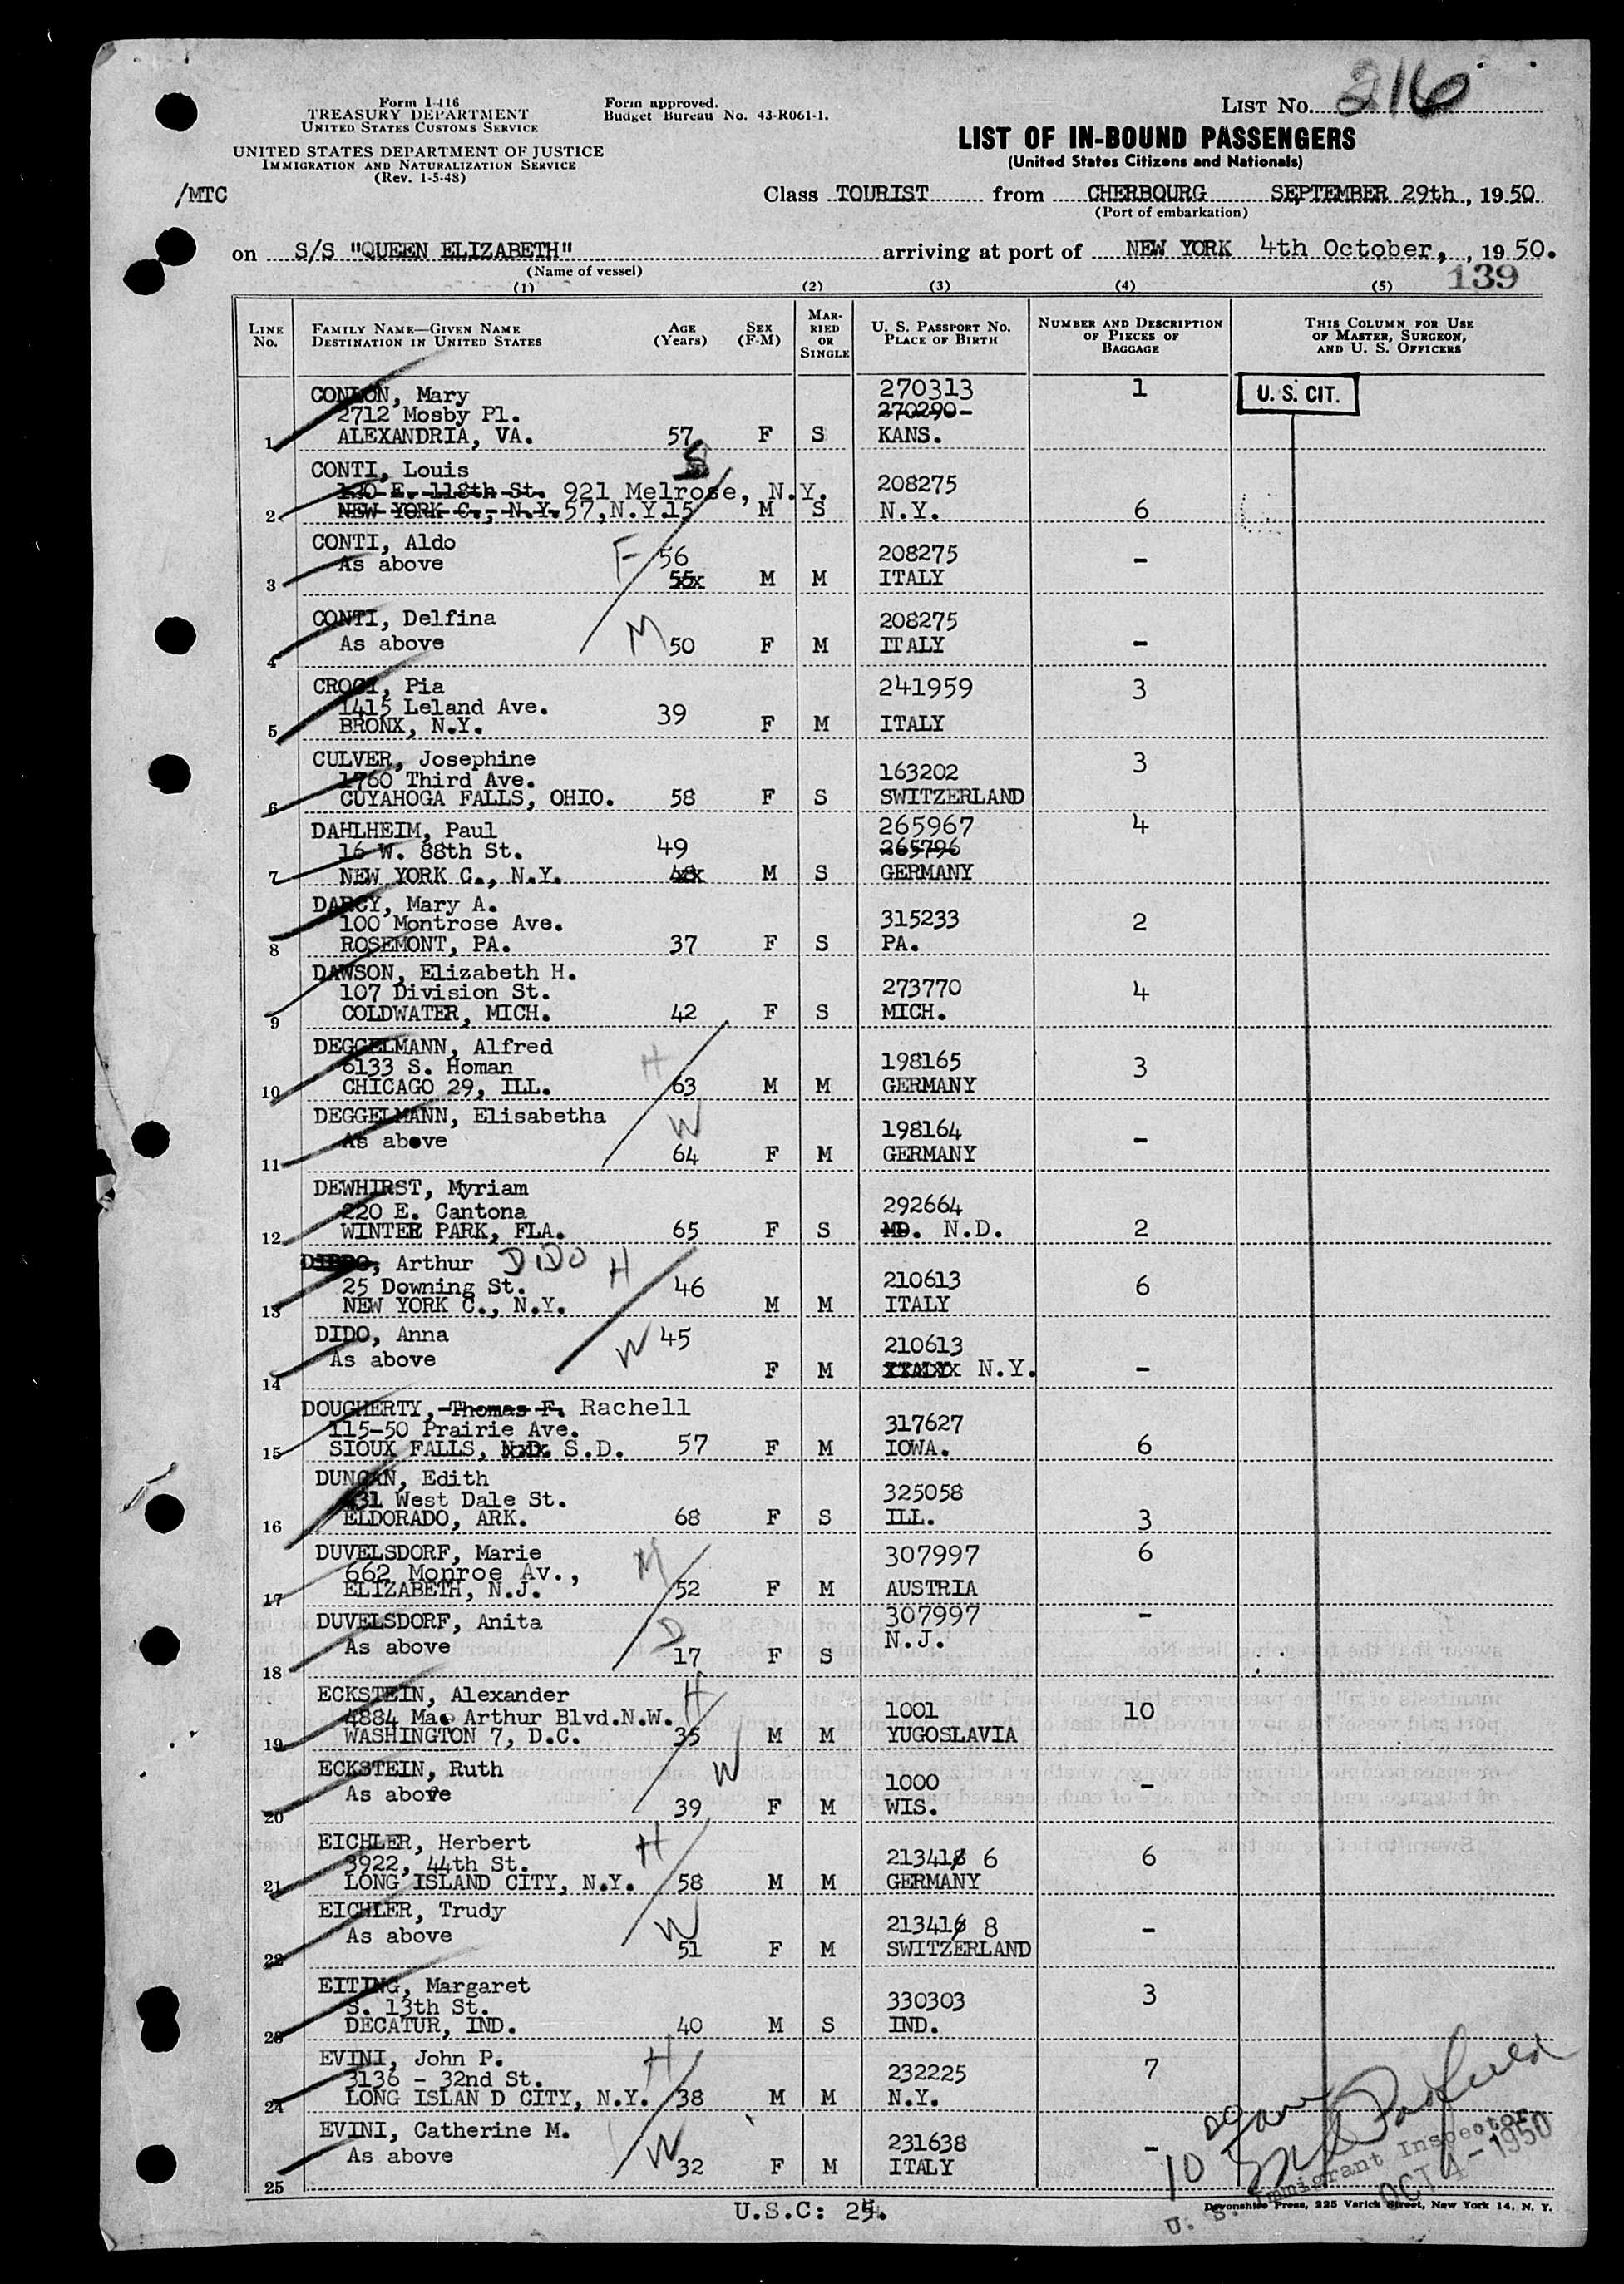 LIST NO. 216
Form I-416
TREASURY DEPARTMENT
UNITED STATES CUSTOMS SERVICE
Form approved.
Budget Bureau No. 43-R061-1.
UNITED STATES DEPARTMENT OF JUSTICE
IMMIGRATION AND NATURALIZATION SERVICE
(Rev. 1-5-48)
LIST OF IN-BOUND PASSENGERS
(United States Citizens and Nationals)
/MTC
Class TOURIST from CHERBOURG SEPTEMBER 29th, 1950
(Port of embarkation)
on S/S "QUEEN ELIZABETH" arriving at port of NEW YORK 4th October, , 1950.
(Name of vessel)
139
(1) (2) (3) (4) (5)
LINE NO. FAMILY NAME—GIVEN NAME DESTINATION IN UNITED STATES AGE (YEARS) SEX (F-M) MARRIED OR SINGLE U. S. PASSPORT NO. PLACE OF BIRTH NUMBER AND DESCRIPTION OF PIECES OF BAGGAGE THIS COLUMN FOR USE OF MASTER, SURGEON, AND U. S. OFFICERS
CONLON, Mary 270313 1 U. S. CIT.
2712 Mosby Pl. 270290-
1 ALEXANDRIA, VA. 57 F S KANS.
CONTI, Louis S
130 E. 118th St. 921 Melrose, N.Y. 208275
2 NEW YORK C., N.Y. 57,N.Y. 15 M S N.Y. 6
CONTI, Aldo F 56 208275 -
As above
3 55xx M M ITALY
CONTI, Delfina 208275
4 As above M 50 F M ITALY -
CROCI, Pia 241959 3
1415 Leland Ave. 39
5 BRONX, N.Y. F M ITALY
CULVER, Josephine 3
1760 Third Ave. 163202
6 CUYAHOGA FALLS, OHIO. 58 F S SWITZERLAND
DAHLHEIM, Paul 265967 4
16 W. 88th St. 49 265796
7 NEW YORK C., N.Y. 48x M S GERMANY
DARCY, Mary A.
100 Montrose Ave. 315233 2
8 ROSEMONT, PA. 37 F S PA.
DAWSON, Elizabeth H.
107 Division St. 273770 4
9 COLDWATER, MICH. 42 F S MICH.
DEGGELMANN, Alfred H
6133 S. Homan 198165 3
10 CHICAGO 29, ILL. 63 M M GERMANY
DEGGELMANN, Elisabetha W
As above 198164 -
11 64 F M GERMANY
DEWHIRST, Myriam
220 E. Cantona 292664
12 WINTER PARK, FLA. 65 F S MD. N.D. 2
Arthur DIDO H
25 Downing St. 46 210613 6
13 NEW YORK C., N.Y. M M ITALY
DIDO, Anna W 45 210613
As above
14 F M N.Y. -
DOUGHERTY, Thomas F. Rachell
115-50 Prairie Ave. 317627
15 SIOUX FALLS, N.D. S.D. 57 F M IOWA. 6
DUNCAN, Edith
431 West Dale St. 325058
16 ELDORADO, ARK. 68 F S ILL. 3
DUVELSDORF, Marie M 307997 6
662 Monroe Av.,
17 ELIZABETH, N.J. 52 F M AUSTRIA
DUVELSDORF, Anita D 307997 -
As above N.J.
18 17 F S
ECKSTEIN, Alexander H
4884 Mac Arthur Blvd.N.W. 1001 10
19 WASHINGTON 7, D.C. 35 M M YUGOSLAVIA
ECKSTEIN, Ruth W
As above 1000 -
20 39 F M WIS.
EICHLER, Herbert H
3922, 44th St. 213418 6 6
21 LONG ISLAND CITY, N.Y. 58 M M GERMANY
EICHLER, Trudy W
As above 213416 8 -
22 51 F M SWITZERLAND
EITING, Margaret
S. 13th St. 330303 3
23 DECATUR, IND. 40 M S IND.
EVINI, John P. H
3136 - 32nd St. 232225 7
24 LONG ISLAN D CITY, N.Y. 38 M M N.Y.
EVINI, Catherine M. W
As above 231638 -
25 32 F M ITALY
U.S.C: 24.
U. S. Immigrant Inspector
OCT 4 - 1950
Devonshire Press, 225 Varick Street, New York 14, N. Y.